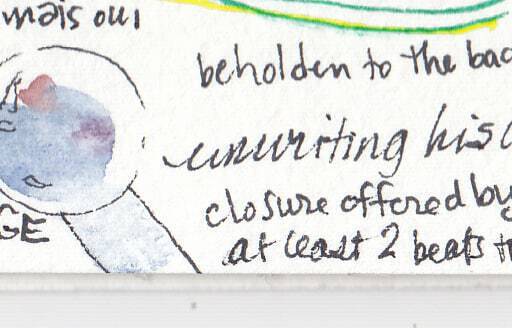 mais oui
beholden to the bac
unwriting his
closure offered by
at least 2 beats t
GE